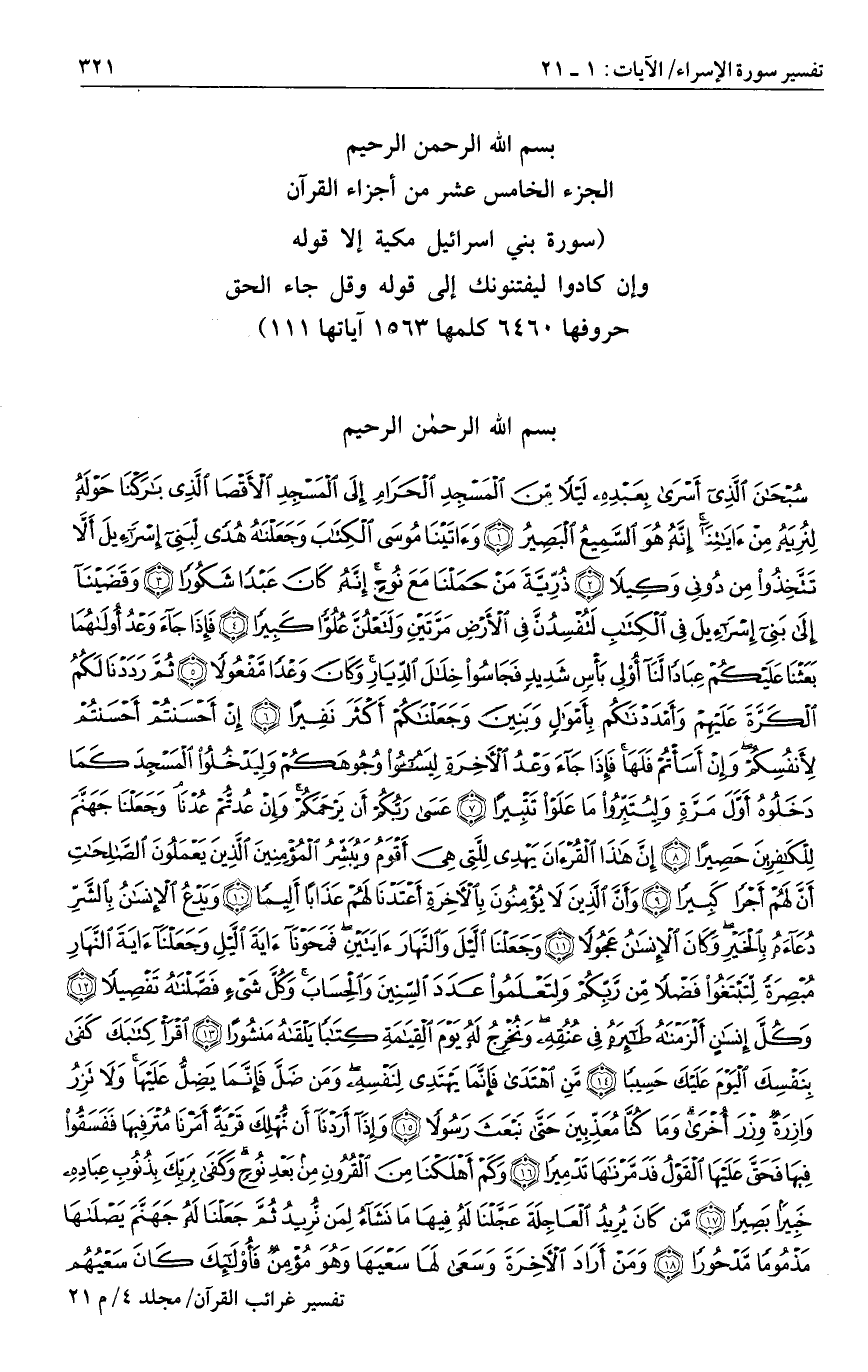 تفسير سورة الإسراء/ الآيات: ١ ـ ٢١ ٣٢١
بسم الله الرحمن الرحيم
الجزء الخامس عشر من أجزاء القرآن
(سورة بني اسرائيل مكية إلا قوله
وإن كادوا ليفتنونك إلى قوله وقل جاء الحق
حروفها ٦٤٦٠ كلمها ١٥٦٣ آياتها ١١١)
بسم الله الرحمٰن الرحيم
سُبْحَٰنَ ٱلَّذِىٓ أَسْرَىٰ بِعَبْدِهِۦ لَيْلًا مِّنَ ٱلْمَسْجِدِ ٱلْحَرَامِ إِلَى ٱلْمَسْجِدِ ٱلْأَقْصَا ٱلَّذِى بَٰرَكْنَا حَوْلَهُۥ
لِنُرِيَهُۥ مِنْ ءَايَٰتِنَآ ۚ إِنَّهُۥ هُوَ ٱلسَّمِيعُ ٱلْبَصِيرُ ﴿١﴾ وَءَاتَيْنَا مُوسَى ٱلْكِتَٰبَ وَجَعَلْنَٰهُ هُدًى لِّبَنِىٓ إِسْرَٰٓءِيلَ أَلَّا
تَتَّخِذُوا۟ مِن دُونِى وَكِيلًا ﴿٢﴾ ذُرِّيَّةَ مَنْ حَمَلْنَا مَعَ نُوحٍ ۚ إِنَّهُۥ كَانَ عَبْدًا شَكُورًا ﴿٣﴾ وَقَضَيْنَآ
إِلَىٰ بَنِىٓ إِسْرَٰٓءِيلَ فِى ٱلْكِتَٰبِ لَتُفْسِدُنَّ فِى ٱلْأَرْضِ مَرَّتَيْنِ وَلَتَعْلُنَّ عُلُوًّا كَبِيرًا ﴿٤﴾ فَإِذَا جَآءَ وَعْدُ أُولَىٰهُمَا
بَعَثْنَا عَلَيْكُمْ عِبَادًا لَّنَآ أُو۟لِى بَأْسٍ شَدِيدٍ فَجَاسُوا۟ خِلَٰلَ ٱلدِّيَارِ ۚ وَكَانَ وَعْدًا مَّفْعُولًا ﴿٥﴾ ثُمَّ رَدَدْنَا لَكُمُ
ٱلْكَرَّةَ عَلَيْهِمْ وَأَمْدَدْنَٰكُم بِأَمْوَٰلٍ وَبَنِينَ وَجَعَلْنَٰكُمْ أَكْثَرَ نَفِيرًا ﴿٦﴾ إِنْ أَحْسَنتُمْ أَحْسَنتُمْ
لِأَنفُسِكُمْ ۖ وَإِنْ أَسَأْتُمْ فَلَهَا ۚ فَإِذَا جَآءَ وَعْدُ ٱلْءَاخِرَةِ لِيَسُۥٓـُٔوا۟ وُجُوهَكُمْ وَلِيَدْخُلُوا۟ ٱلْمَسْجِدَ كَمَا
دَخَلُوهُ أَوَّلَ مَرَّةٍ وَلِيُتَبِّرُوا۟ مَا عَلَوْا۟ تَتْبِيرًا ﴿٧﴾ عَسَىٰ رَبُّكُمْ أَن يَرْحَمَكُمْ ۚ وَإِنْ عُدتُّمْ عُدْنَا ۘ وَجَعَلْنَا جَهَنَّمَ
لِلْكَٰفِرِينَ حَصِيرًا ﴿٨﴾ إِنَّ هَٰذَا ٱلْقُرْءَانَ يَهْدِى لِلَّتِى هِىَ أَقْوَمُ وَيُبَشِّرُ ٱلْمُؤْمِنِينَ ٱلَّذِينَ يَعْمَلُونَ ٱلصَّٰلِحَٰتِ
أَنَّ لَهُمْ أَجْرًا كَبِيرًا ﴿٩﴾ وَأَنَّ ٱلَّذِينَ لَا يُؤْمِنُونَ بِٱلْءَاخِرَةِ أَعْتَدْنَا لَهُمْ عَذَابًا أَلِيمًا ﴿١٠﴾ وَيَدْعُ ٱلْإِنسَٰنُ بِٱلشَّرِّ
دُعَآءَهُۥ بِٱلْخَيْرِ ۖ وَكَانَ ٱلْإِنسَٰنُ عَجُولًا ﴿١١﴾ وَجَعَلْنَا ٱلَّيْلَ وَٱلنَّهَارَ ءَايَتَيْنِ ۖ فَمَحَوْنَآ ءَايَةَ ٱلَّيْلِ وَجَعَلْنَآ ءَايَةَ ٱلنَّهَارِ
مُبْصِرَةً لِّتَبْتَغُوا۟ فَضْلًا مِّن رَّبِّكُمْ وَلِتَعْلَمُوا۟ عَدَدَ ٱلسِّنِينَ وَٱلْحِسَابَ ۚ وَكُلَّ شَىْءٍ فَصَّلْنَٰهُ تَفْصِيلًا ﴿١٢﴾
وَكُلَّ إِنسَٰنٍ أَلْزَمْنَٰهُ طَٰٓئِرَهُۥ فِى عُنُقِهِۦ ۖ وَنُخْرِجُ لَهُۥ يَوْمَ ٱلْقِيَٰمَةِ كِتَٰبًا يَلْقَىٰهُ مَنشُورًا ﴿١٣﴾ ٱقْرَأْ كِتَٰبَكَ كَفَىٰ
بِنَفْسِكَ ٱلْيَوْمَ عَلَيْكَ حَسِيبًا ﴿١٤﴾ مَّنِ ٱهْتَدَىٰ فَإِنَّمَا يَهْتَدِى لِنَفْسِهِۦ ۖ وَمَن ضَلَّ فَإِنَّمَا يَضِلُّ عَلَيْهَا ۚ وَلَا تَزِرُ
وَازِرَةٌ وِزْرَ أُخْرَىٰ ۗ وَمَا كُنَّا مُعَذِّبِينَ حَتَّىٰ نَبْعَثَ رَسُولًا ﴿١٥﴾ وَإِذَآ أَرَدْنَآ أَن نُّهْلِكَ قَرْيَةً أَمَرْنَا مُتْرَفِيهَا فَفَسَقُوا۟
فِيهَا فَحَقَّ عَلَيْهَا ٱلْقَوْلُ فَدَمَّرْنَٰهَا تَدْمِيرًا ﴿١٦﴾ وَكَمْ أَهْلَكْنَا مِنَ ٱلْقُرُونِ مِنۢ بَعْدِ نُوحٍ ۗ وَكَفَىٰ بِرَبِّكَ بِذُنُوبِ عِبَادِهِۦ
خَبِيرًۢا بَصِيرًا ﴿١٧﴾ مَّن كَانَ يُرِيدُ ٱلْعَاجِلَةَ عَجَّلْنَا لَهُۥ فِيهَا مَا نَشَآءُ لِمَن نُّرِيدُ ثُمَّ جَعَلْنَا لَهُۥ جَهَنَّمَ يَصْلَىٰهَا
مَذْمُومًا مَّدْحُورًا ﴿١٨﴾ وَمَنْ أَرَادَ ٱلْءَاخِرَةَ وَسَعَىٰ لَهَا سَعْيَهَا وَهُوَ مُؤْمِنٌ فَأُو۟لَٰٓئِكَ كَانَ سَعْيُهُم
تفسير غرائب القرآن/ مجلد ٤/ م ٢١